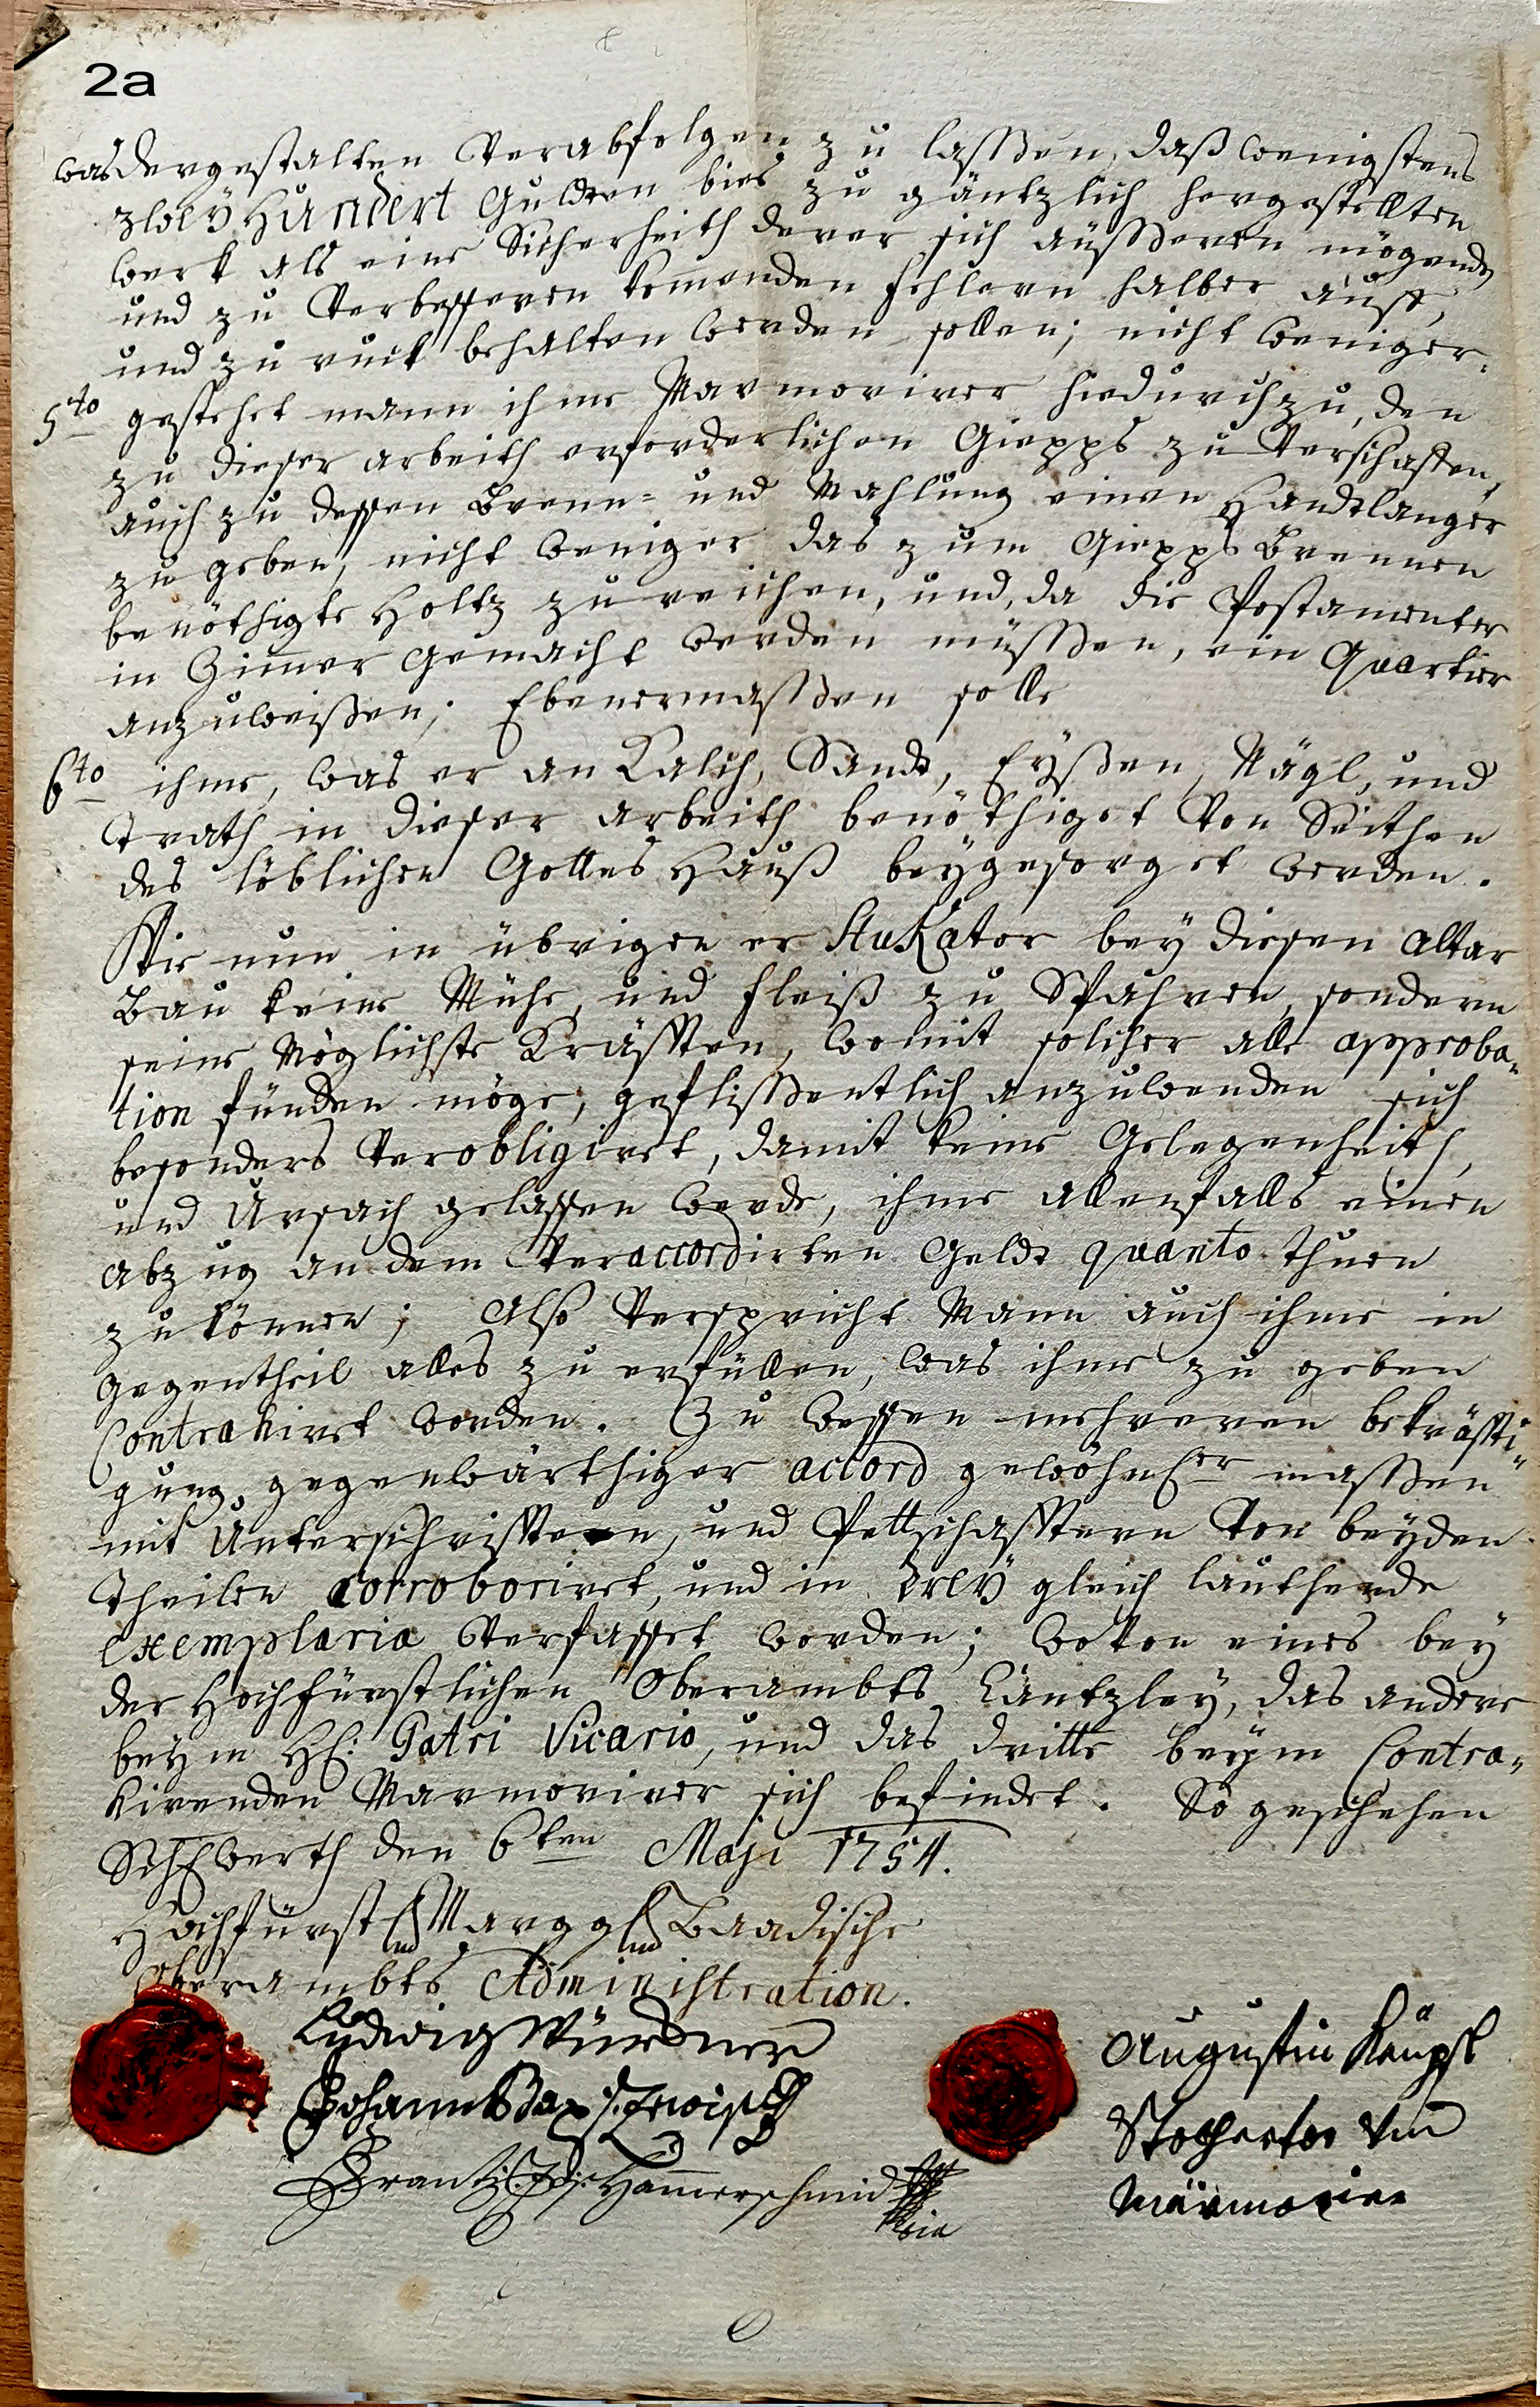 2a
was dergestalten Verabfolgen zu lassen, daß wenigstens
zwey Hundert Gulden bies zu gäntzlich hergestellten
werk als eine Sicherheith derer sich äusseren mögenden
und zu Verbesseren komenden fehlern halber auff,
und zu ruck behalten werden sollen; nicht weniger
5to gestehet mann ihme Marmorirer hiedurch zu, den
zu dieser arbeith erforderlichen Giepps zu Verschaffen,
auch zu dessen Brenn- und Mahlung einen Handtlanger
zu geben, nicht weniger das zum Giepps Brennen
benöthigte Holtz zu reichen, und, da die Postamenter
in Zimer gemacht werden müssen, ein Quartier
anzuweißen; Ebenermassen solle
6to ihme, was er an Kalch, Sandt, Eyßen, Nägl, und
Trath in dieser arbeith benöthiget Von Seithen
des löblichen Gottes Hauß beygesorget werden.
Wie nun in übrigen er Stukator bey diesen altar
Bau keine Mühe, und fleiß zu Spahren, sondern
seine Möglichste Kräfften, womit solcher alle approba-
tion fünden möge, geflissentlich anzuwenden sich
besonders Verobligiret, damit keine Gelegenheith,
und Ursach gelassen werde, ihme allenfalls einen
abzug an dem Veraccordirten Geldt quanto thuen
zu können; Also Verspricht Mann auch ihme in
gegentheil alles zu erfüllen, was ihme zu geben
Contrahiret worden. Zu dessen mehreren bekräffti-
gung gegenwärthiger accord gewöhnl.er massen
mit Unterschrifften, und Pettschafftern Von beyden
Theilen corroboriret, und in drey gleich lauthende
exemplaria Verfasset worden; woVon eines bey
der Hochfürstlichen Oberambts Cäntzley, das andere
beym H: Patri Vicario, und das dritte beym Contra-
hirenden Marmorirer sich befindet. So geschehen
den 6ten Maji 1754.
Hochfürstl. Marggl. Baadische
Oberambts Administration.
Ludwig Würdner
Johann Bap:
Frantz Hamerschmid
Augustin
und
Marmorirer